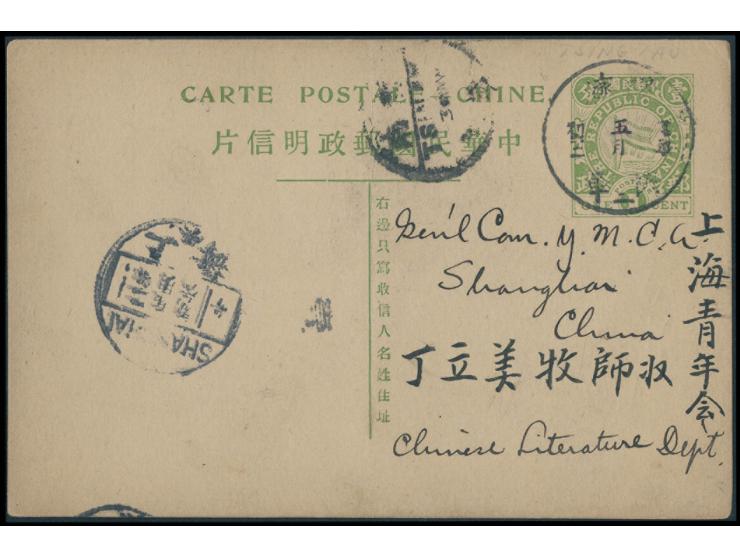 TSINGTAU
CARTE POSTALE - CHINE.
片信明政郵國民華中
THE REPUBLIC OF CHINA
ONE CENT
五月
右邊只寫收信人名姓住址
Gen'l Com. Y. M. C. A.
Shanghai
China
上海青年会
丁立美牧師收
Chinese Literature Dept.
上海
SHANGHAI